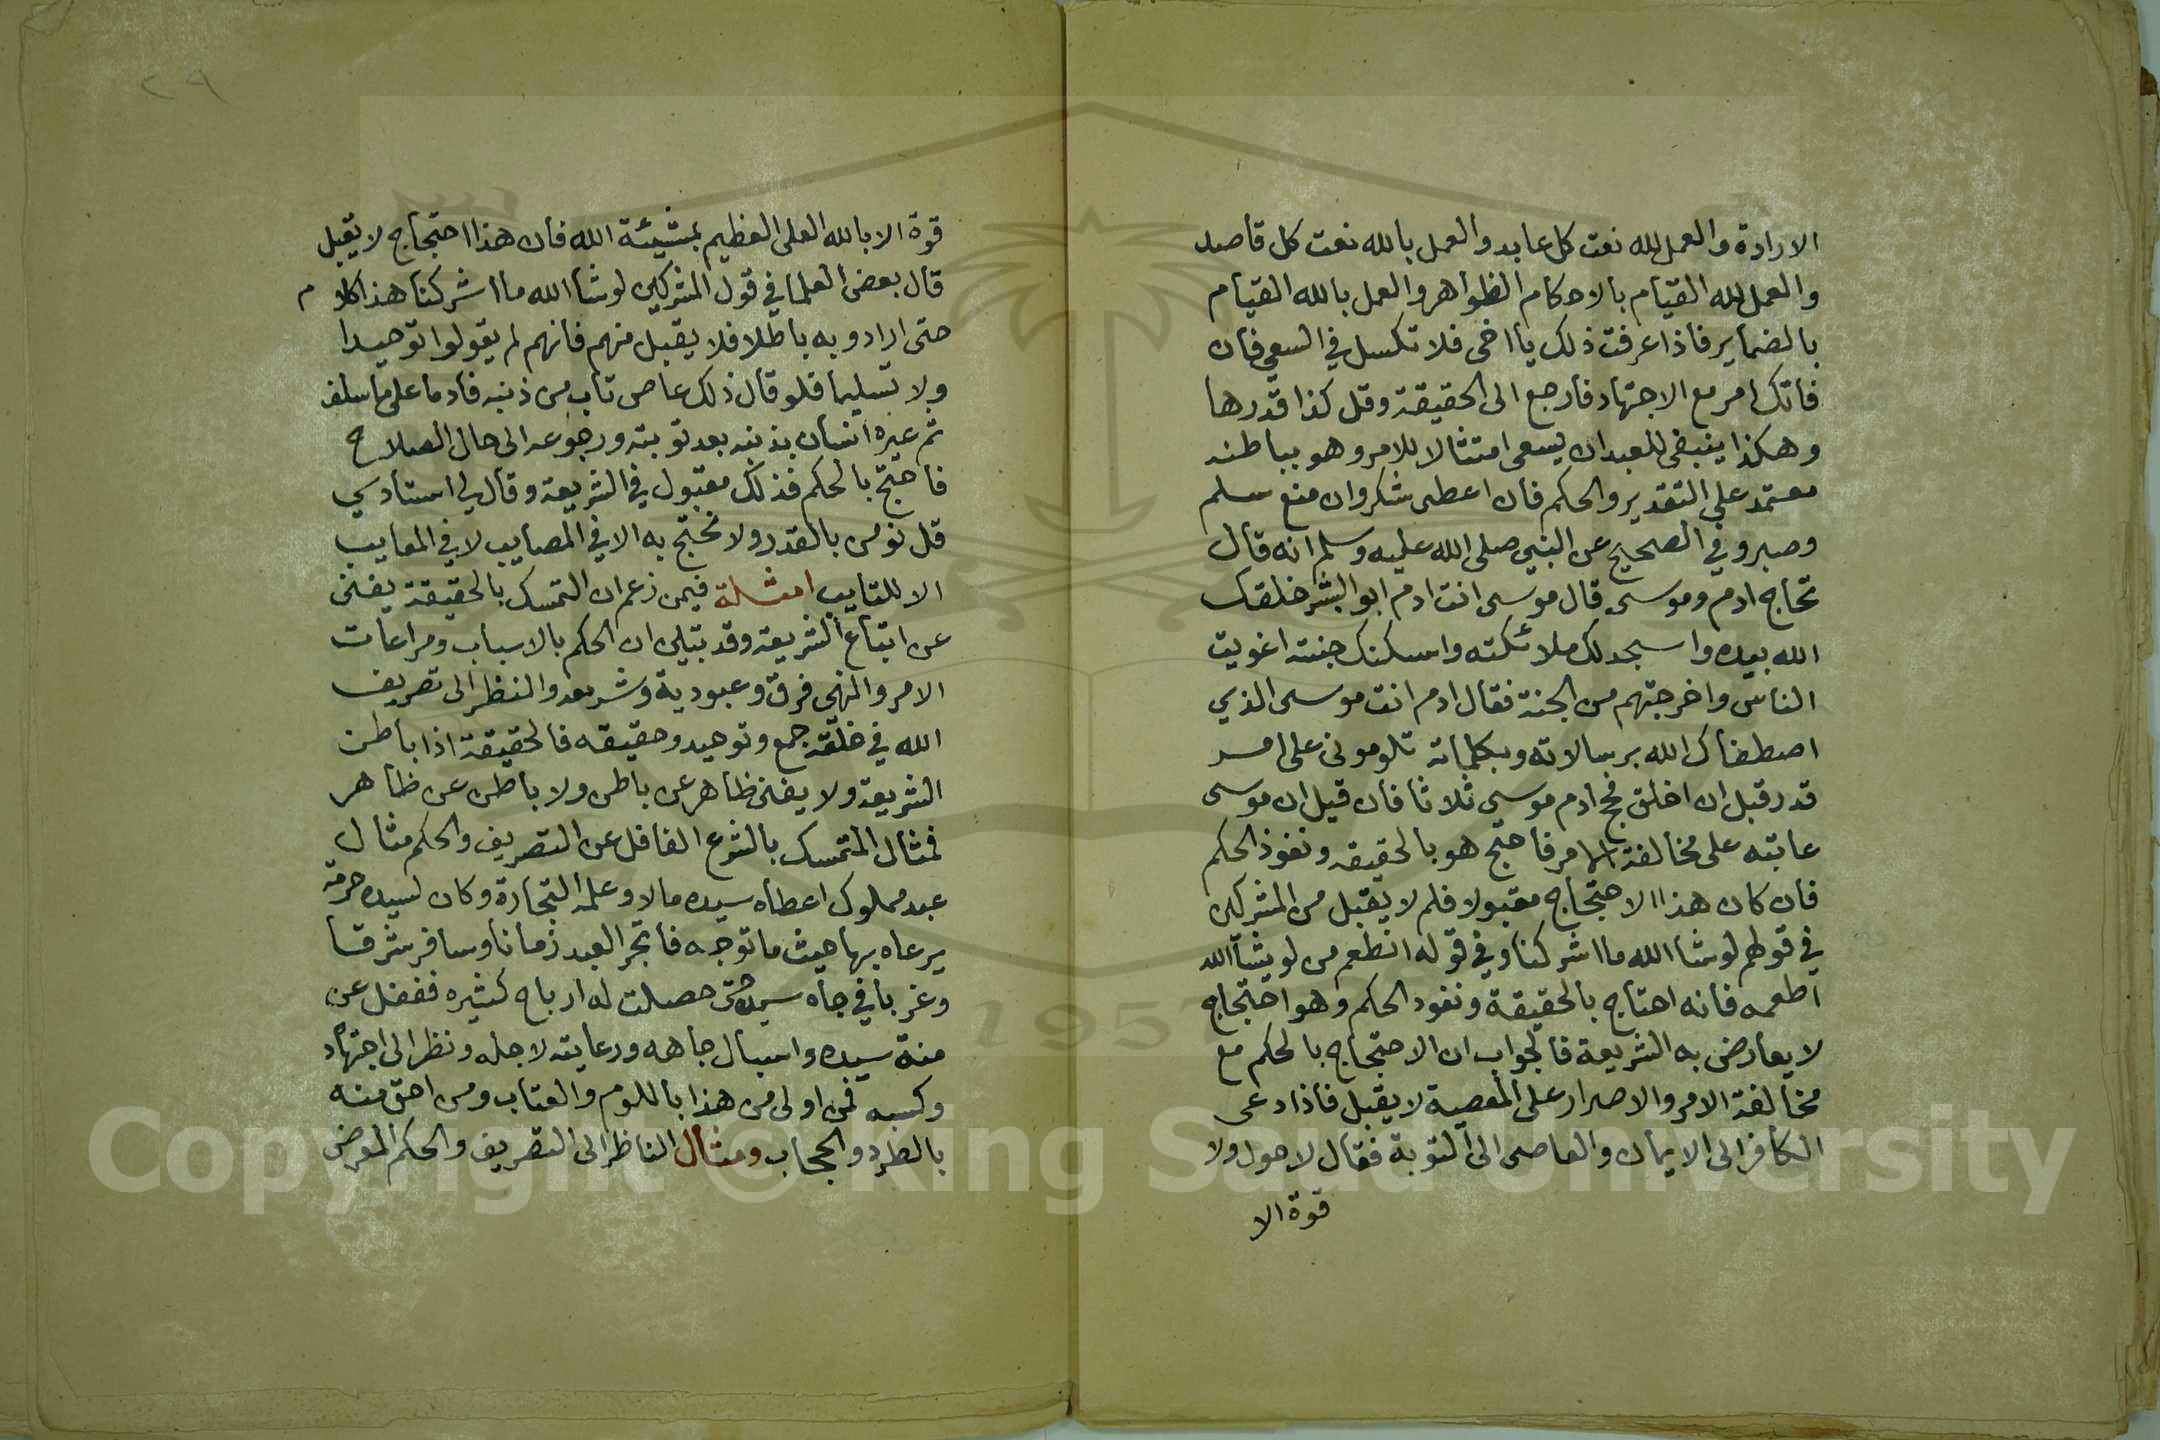 الارادة والعمل لله نعت كل عابد والعمل بالله نعت كل قاصد
والعمل لله القيام بالاحكام الظواهر والعمل بالله القيام
بالضماير فاذا عرفت ذلك يا اخى فلا تكسل في السعي فان
فاتك امر مع الاجتهاد فارجع الى الحقيقة وقل كذا قدرها
وهكذا ينبغى للعبد ان يسعى امتثالا للامر وهو بباطنه
معتمد على التقدير والحكم فان اعطى شكر وان منع سلم
وصبر وفي الصحيح عن النبي صلى الله عليه وسلم انه قال
تحاج ادم وموسى قال موسى انت ادم ابو البشر خلقك
الله بيده واسجد لك ملائكته واسكنك جنته اغويت
الناس واخرجتهم من الجنة فقال ادم انت موسى الذي
اصطفاك الله برسالاته وبكلماته تلومونى على امر
قدر قبل ان اخلق فحج ادم موسى ثلاثا فان قيل ان موسى
عاتبه على مخالفة الامر فاحتج هو بالحقيقه ونفوذ الحكم
فان كان هذا الاحتجاج مقبولا فلم لا يقبل من المشركين
في قولهم لو شا الله ما اشركنا وفي قوله انطعم من لو يشآ الله
اطعمه فانه احتاج بالحقيقة ونفود الحكم وهو احتجاج
لا يعارض به الشريعة فالجواب ان الاحتجاج بالحكم مع
مخالفة الامر والاصرار على المعصية لا يقبل فاذا دعى
الكافر الى الايمان والعاصى الى التوبة فقال لا حول ولا
قوة الا
٢٩
قوة الا بالله العلى العظيم بمشيئة الله فان هذا احتجاج لا يقبل
قال بعض العلما في قول المشركين لو شا الله ما اشركنا هذا كلام
حتى ارادو به باطلا فلا يقبل منهم فانهم لم يقولوا توحيدا
ولا تسليما فلو قال ذلك عاص تاب من ذنبه فادما على ما سلف
ثم عيره انسان بذنبه بعد توبته ورجوعه الى حال الصلاح
فاحتج بالحكم فذلك مقبول في الشريعة وقال لي استادي
قل نومن بالقدر ولا نحتج به الا في المصايب لا في المعايب
الا للتايب امثلة فيمن زعم ان التمسك بالحقيقة يغنى
عن اتباع الشريعة وقد بتلى ان الحكم بالاسباب ومراعات
الامر والنهى فرق وعبودية وشريعه والنظر الى تصريف
الله في خلقه جمع وتوحيد وحقيقه فالحقيقة اذا باطن
الشريعة ولا يغنى ظاهر عن باطن ولا باطن عن ظاهر
فمثال المتمسك بالشرع الغافل عن التصريف والحكم مثال
عبد مملوك اعطاه سيده مالا وعلمه التجارة وكان لسيده حرمة
يرعاه بها حيث ما توجه فاتجر العبد زمانا وسافر شرقا
وغربا في جاه سيده حتى حصلت له ارباح كثيره فغفل عن
منة سيده واسبال جاهه ورعايته لاجله ونظر الى اجتهاد
وكسبه فمن اولى من هذا باللوم والعتاب ومن احق منه
بالطرد والحجاب ومثال الناظر الى التصريف والحكم المعرض
1957
Copyright © King Saud University